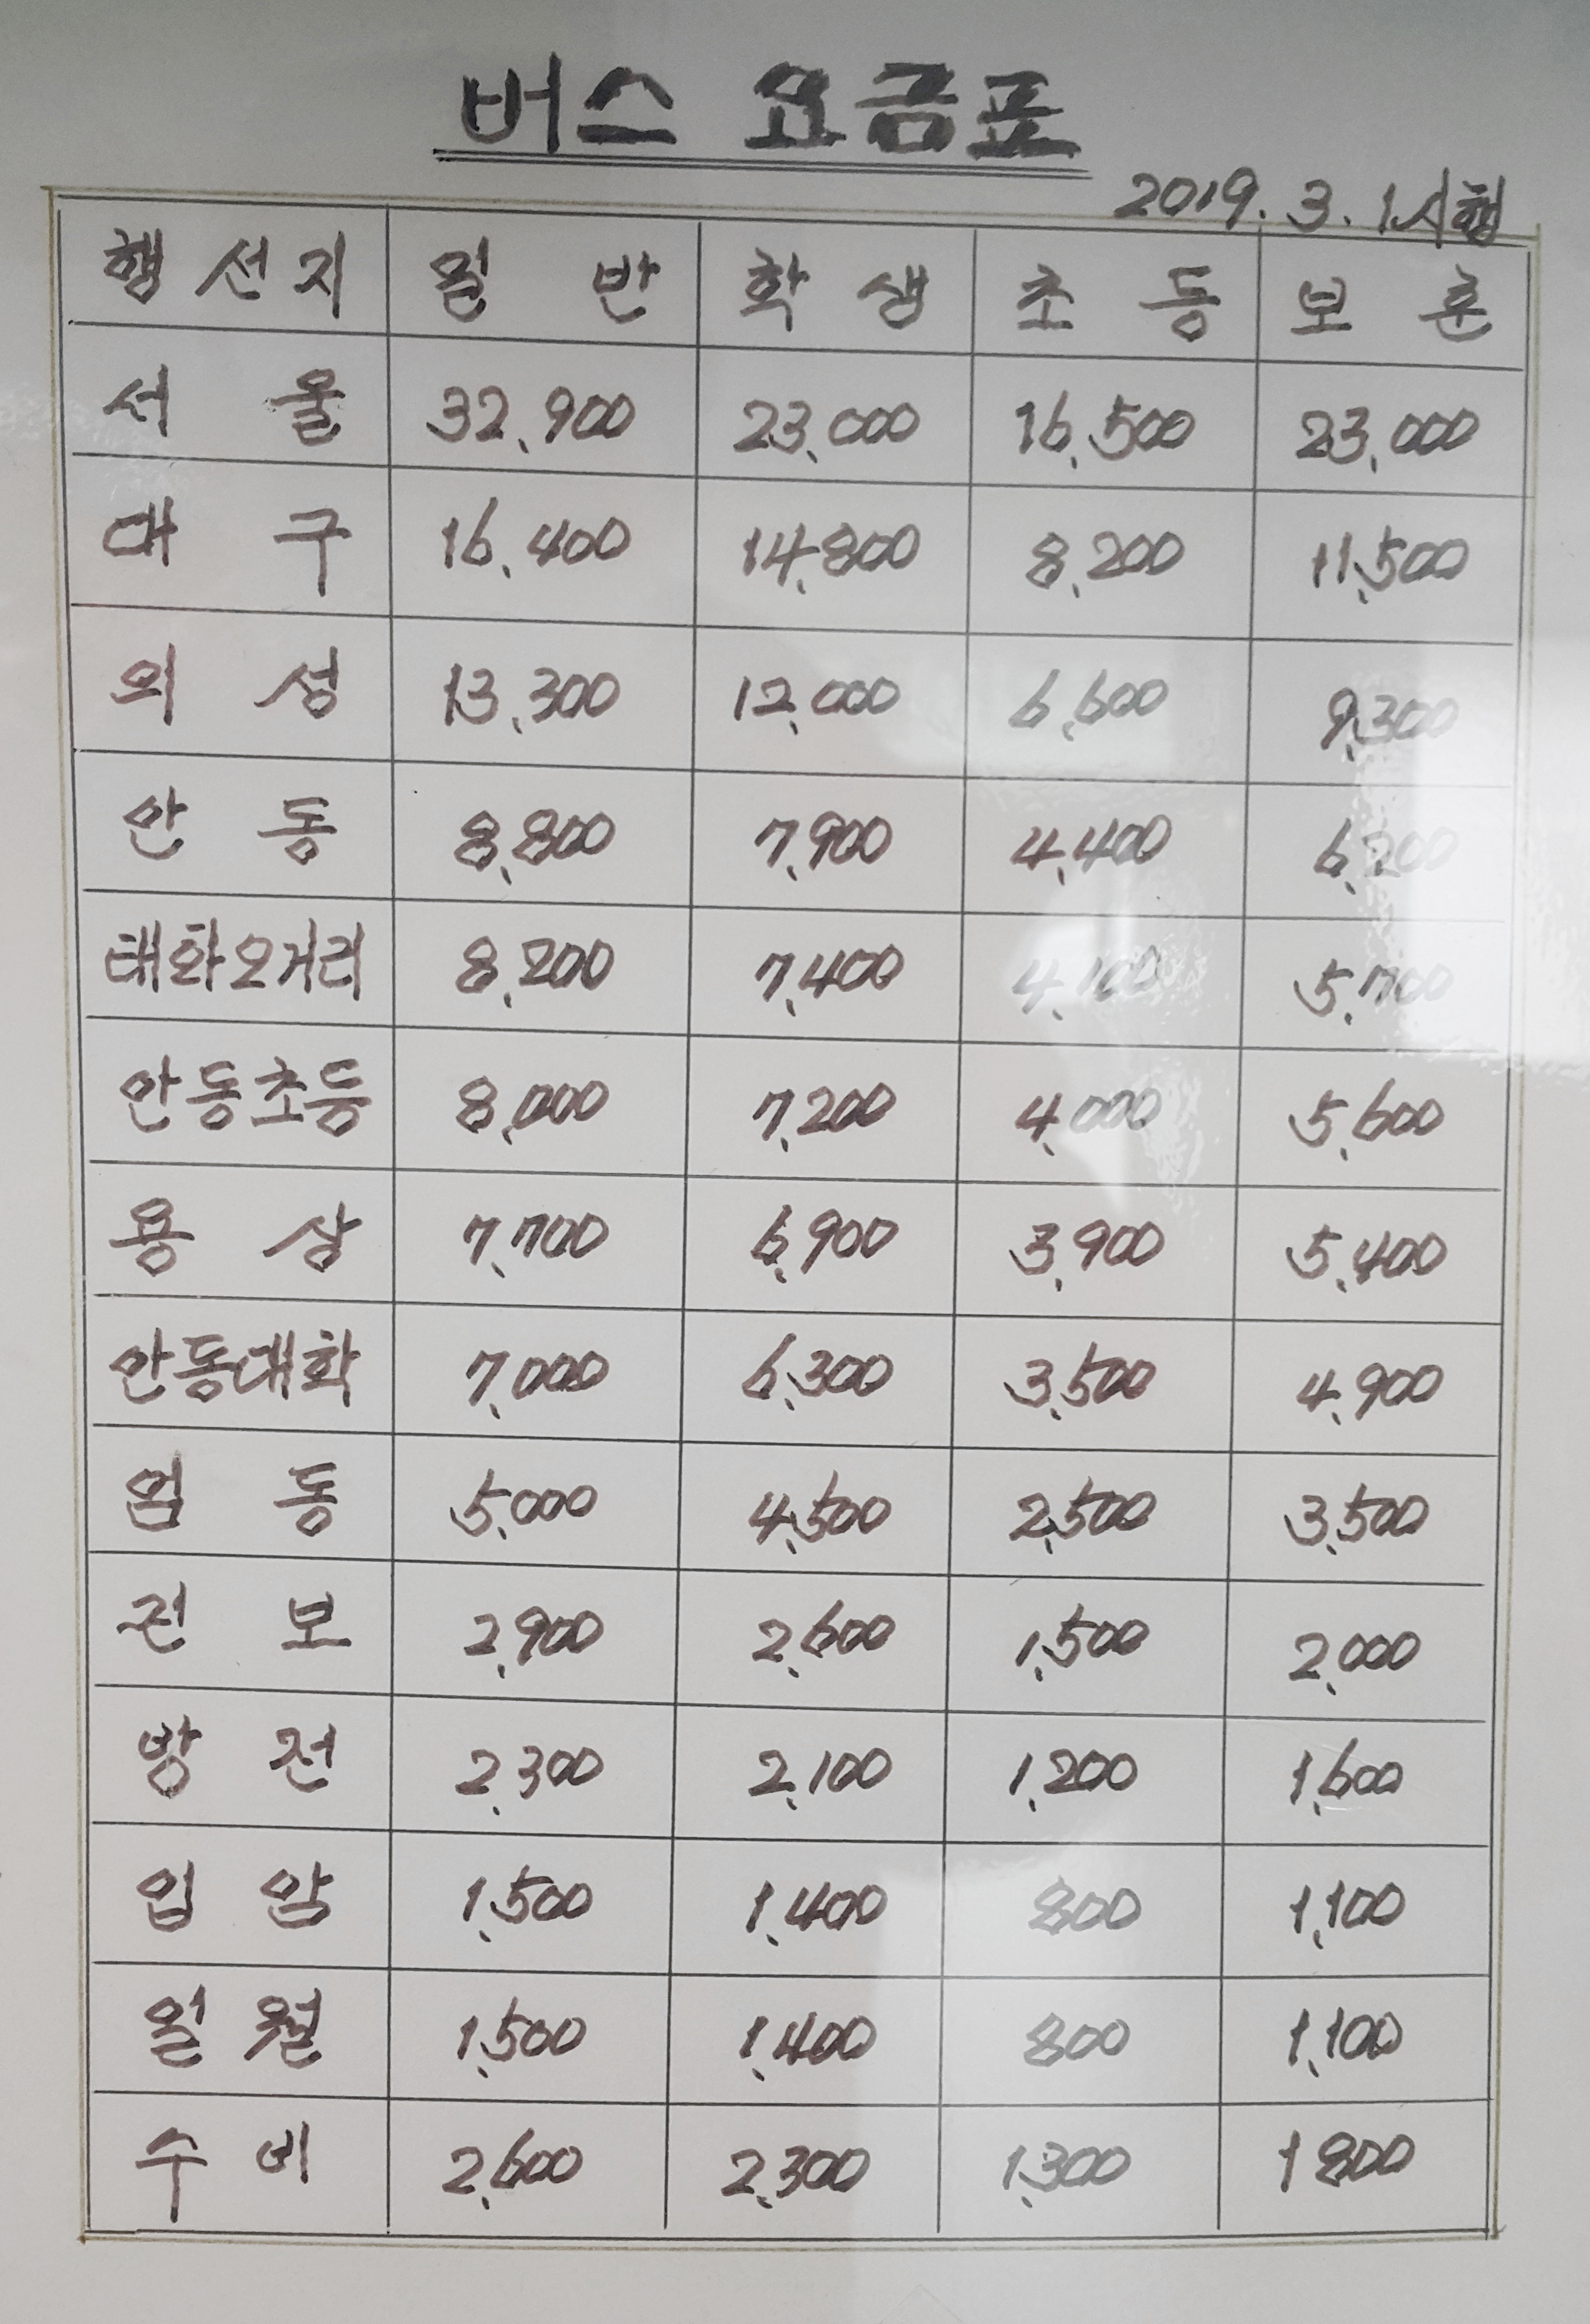 버스 요금표
2019. 3. 1시행
행선지 일반 학생 초등 보훈
서울 32,900 23,000 16,500 23,000
대구 16,400 14,800 8,200 11,500
의성 13,300 12,000 6,600 9,300
안동 8,800 7,900 4,400 6,200
태화오거리 8,200 7,400 4,100 5,700
안동초등 8,000 7,200 4,000 5,600
용상 7,700 6,900 3,900 5,400
안동대학 7,000 6,300 3,500 4,900
임동 5,000 4,500 2,500 3,500
진보 2,900 2,600 1,500 2,000
방전 2,300 2,100 1,200 1,600
입암 1,500 1,400 800 1,100
일월 1,500 1,400 800 1,100
수비 2,600 2,300 1,300 1800